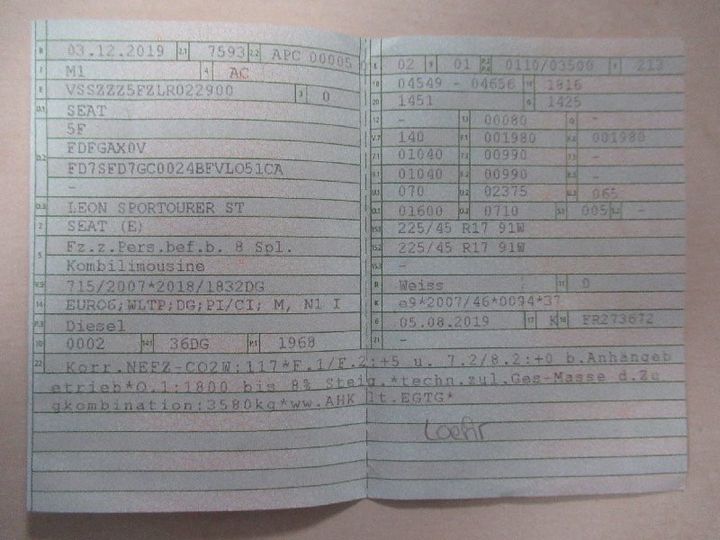 B 03.12.2019 2.1 7593 2.2 APC 00005 0
J M1 4 AC
E VSSZZZ5FZLR022900 3 0
D.1 SEAT
5F
D.2 FDFGAX0V
FD7SFD7GC0024BFVLO51CA
-
D.3 LEON SPORTOURER ST
2 SEAT (E)
5 Fz.z.Pers.bef.b. 8 Spl.
Kombilimousine
V.9 715/2007*2018/1832DG
14 EURO6;WLTP;DG;PI/CI; M, N1 I
P.3 Diesel
10 0002 14.1 36DG P.1 1968
L 02 9 01 P.2/P.4 0110/03500 T 213
18 04549 - 04656 19 1816
20 1451 G 1425
12 - 13 00080 Q -
V.7 140 F.1 001980 F.2 001980
7.1 01040 7.2 00990 7.3 -
8.1 01040 8.2 00990 8.3 -
U.1 070 U.2 02375 U.3 065
O.1 01600 O.2 0710 S.1 005 S.2 -
15.1 225/45 R17 91W
15.2 225/45 R17 91W
15.3 -
R Weiss 11 0
K e9*2007/46*0094*37
6 05.08.2019 17 K 16 FR273672
21 -
22 Korr.NEFZ-CO2W:117*F.1/F.2:+5 u. 7.2/8.2:+0 b.Anhängeb
etrieb*O.1:1800 bis 8% Steig.*techn.zul.Ges-Masse d.Zu
gkombination:3580kg*ww.AHK lt.EGTG*